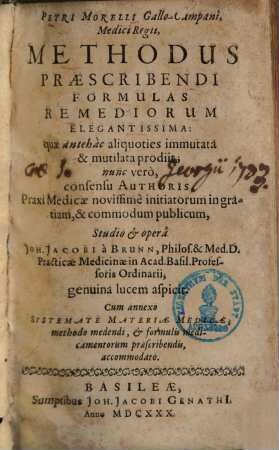 PETRI MORELLI Gallo-Campani,
Medici Regii,
METHODUS
PRÆSCRIBENDI
FORMULAS
REMEDIORUM
ELEGANTISSIMA:
quæ antehàc aliquoties immutata
& mutilata prodiit,
nunc verò, Georgii 1703.
consensu AUTHORIS
Praxi Medicæ novissimè initiatorum in gra-
tiam, & commodum publicum,
Studio & operâ
JOH. JACOBI à BRUNN, Philos. & Med. D.
Practicæ Medicinæ in Acad. Basil. Profes-
soris Ordinarii,
genuina lucem aspicit.
Cum annexo
SYSTEMATE MATERIÆ MEDICÆ,
methodo medendi, & formulis medi-
camentorum præscribendis,
accommodato.
BASILEÆ,
Sumptibus JOH. JACOBI GENATHI.
Anno MDCXXX.